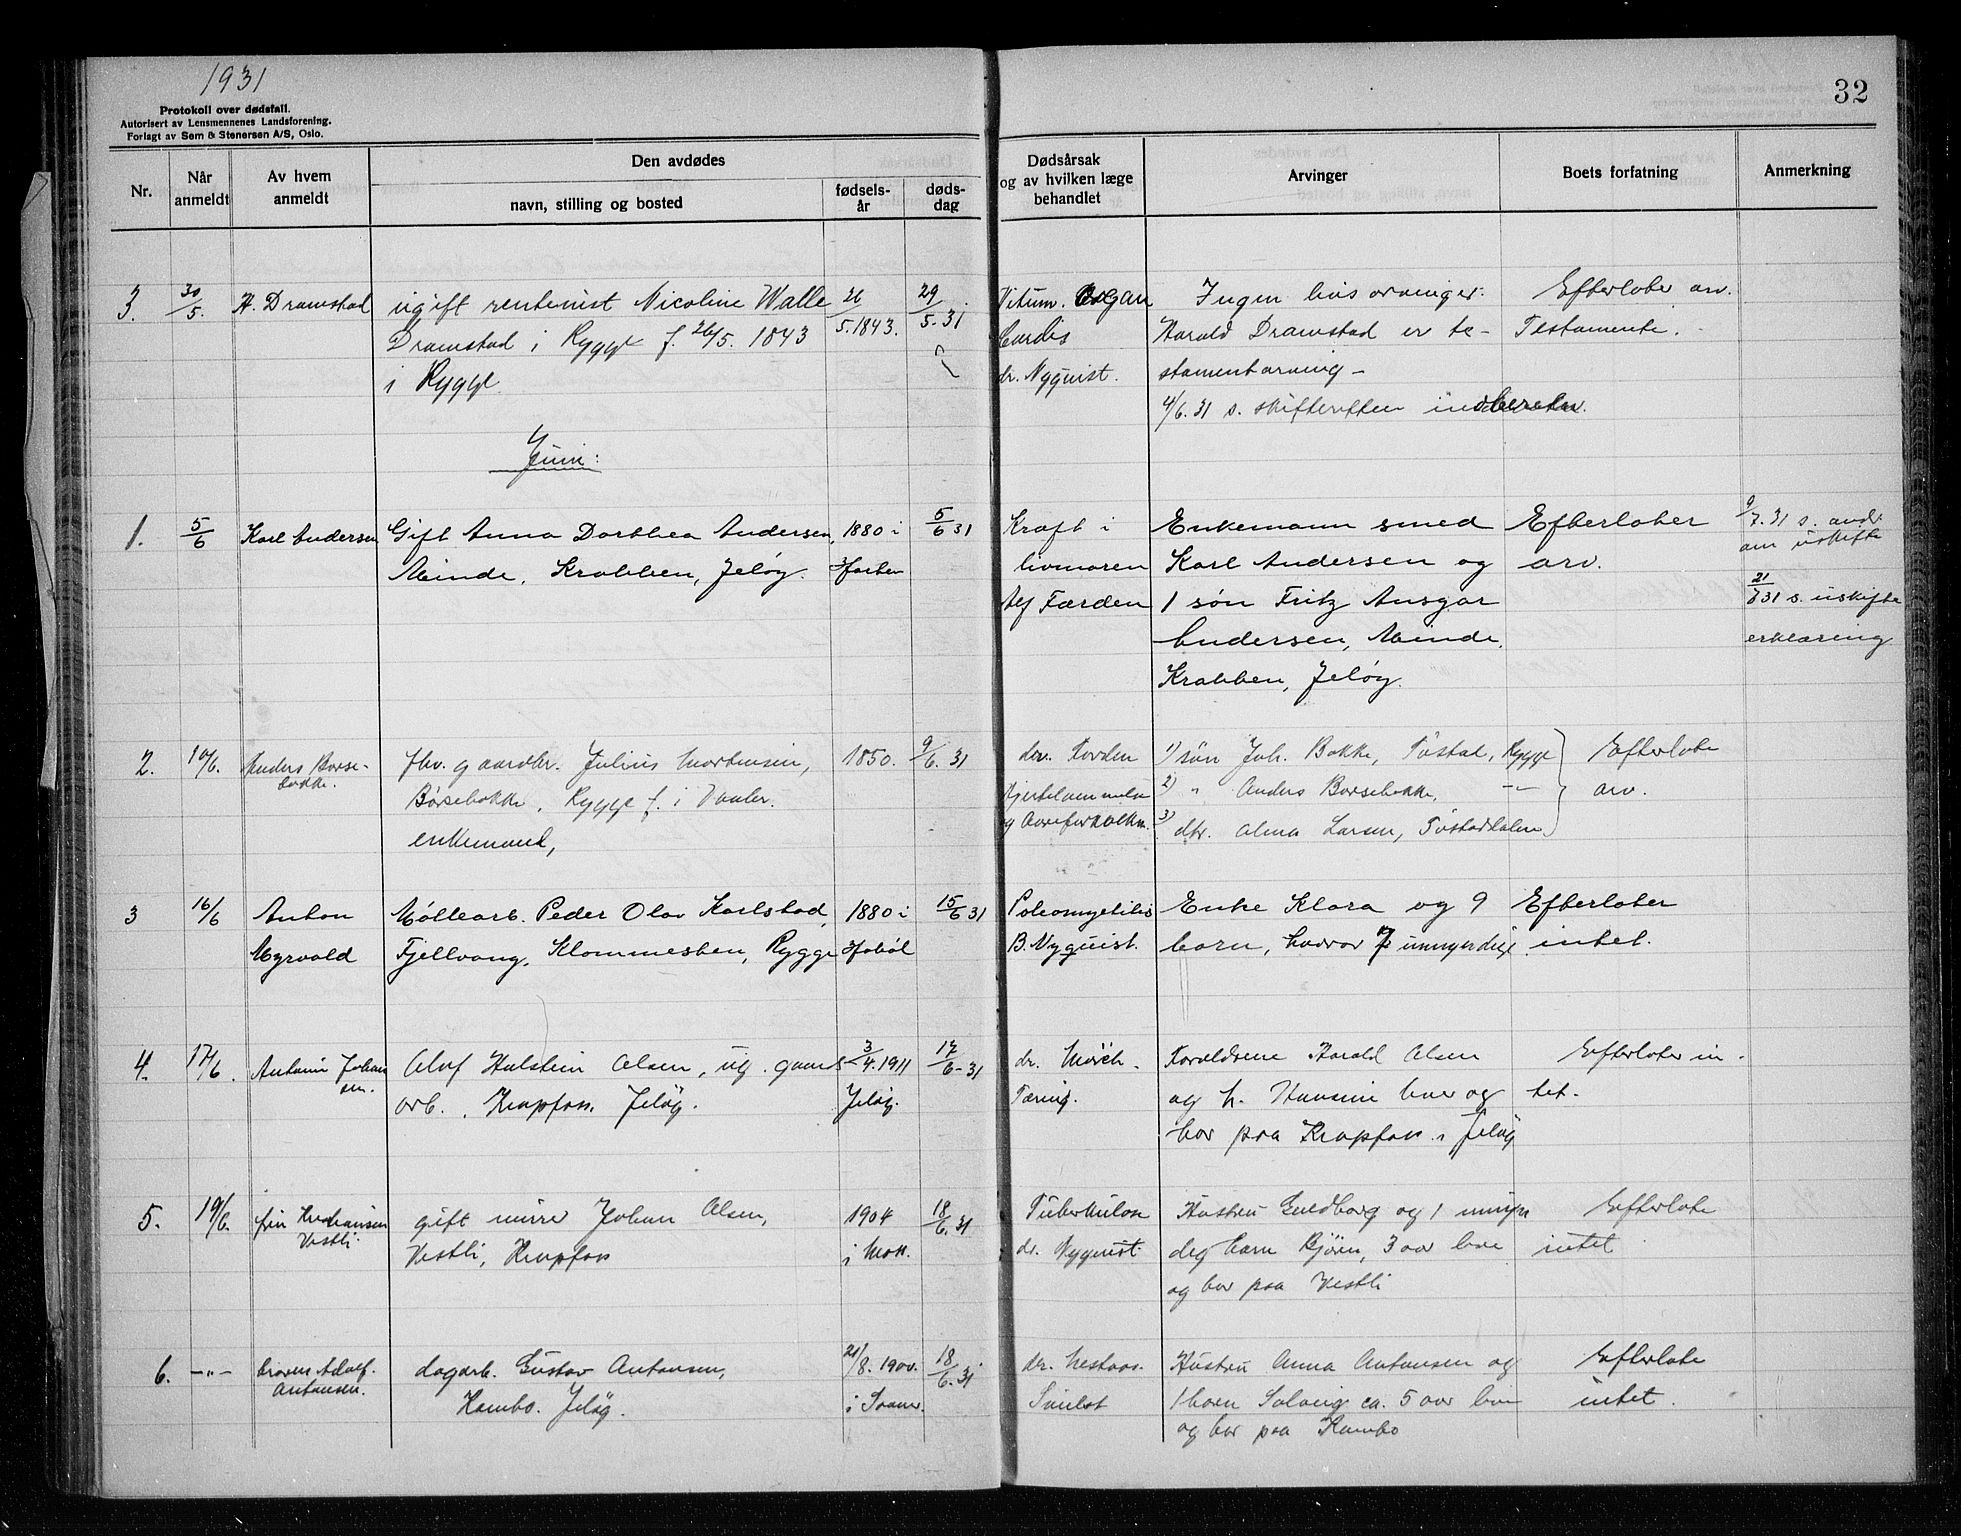 1931
32
Protokoll over dødsfall.
Autorisert av Lensmennenes Landsforening.
Forlagt av Sem & Stenersen A/S, Oslo.
Nr.
Når anmeldt
Av hvem anmeldt
Den avdødes
navn, stilling og bosted
fødsels-
år
døds-
dag
Dødsårsak
og av hvilken læge
behandlet
Arvinger
Boets forfatning
Anmerkning
3. 30/5. H. Dramstad ugift rentenist Nicoline Walle 26 29 Vitum. Organ Ingen livsarvinger. Efterlater arv.
Dramstad i Rygge f. 26/5. 1843 5.1843. 5.31 Cordis Harald Dramstad er te- Testamente.
i Rygge dr. Nyquist. stamentarving -
4/6.31 s. skifteretten indberetn.
Juni:
1. 5/6 Karl Andersen Gift Anna Dorthea Andersen, 1880 i 5/6 31 Kræft i Enkemann smed Efterlater 9/7.31 s.
Minde, Krabben, Jeløy. livmoren Karl Andersen og arv. om uskifte
Alf Færden 1 søn Fritz Ansgar 21 31 s. uskifte
Andersen, Minde, erklæring
Krabben, Jeløy.
2. 10/6. Anders Børse- fhv. gaardbr. Julius Mortensen, 1850. 9/6. 31 1) søn Joh. Bakke, Rygge Efterlate
bakke. Børsebakke, Rygge f. i Vaaler. 2) " Anders Børsebakke, -"- arv.
enkemand, og 3) dtr. Alma Larsen,
3 16/6 Anton Møllearb. Peder Olav Karlstad, 1880 i 15/6 31 Poleomyelitis Enke Klara og 9 Efterlater
Myrvold Fjellvang, Klommesten, Rygge Hobøl B. Nyquist. barn, hvorav 7 umyndige intet.
4. 17/6. Antoni Johan Olaf Holstein Olsen, ug. gaards 3/4.1911 17/6-31 dr. Mørch. Foreldrene Harald Olsen Efterlater in-
sen. arb., Krapfos. Jeløy. Jeløy. Tæring. og h. Hansine lever og tet.
bor paa Krapfos i Jeløy
5. 19/6. fru Kristiansen gift murer Johan Olsen, 1904 18/6. 31 Tuberkulose Hustru Guldborg og 1 umyn Efterlate
Vestli. Vestli, Krapfos i Moss. dr. Nyquist. dig barn Bjørn, 3 aar leve intet
og bor paa Vestli
6. -"- Adolf dagarb. Gustav Antonsen, 21/8.1900. 18/6.31 dr. Hustru Anna Antonsen og Efterlate
Antonsen. Kambo. Jeløy. i 1 barn Solveig ca. 5 aar leve intet.
og bor paa Kambo